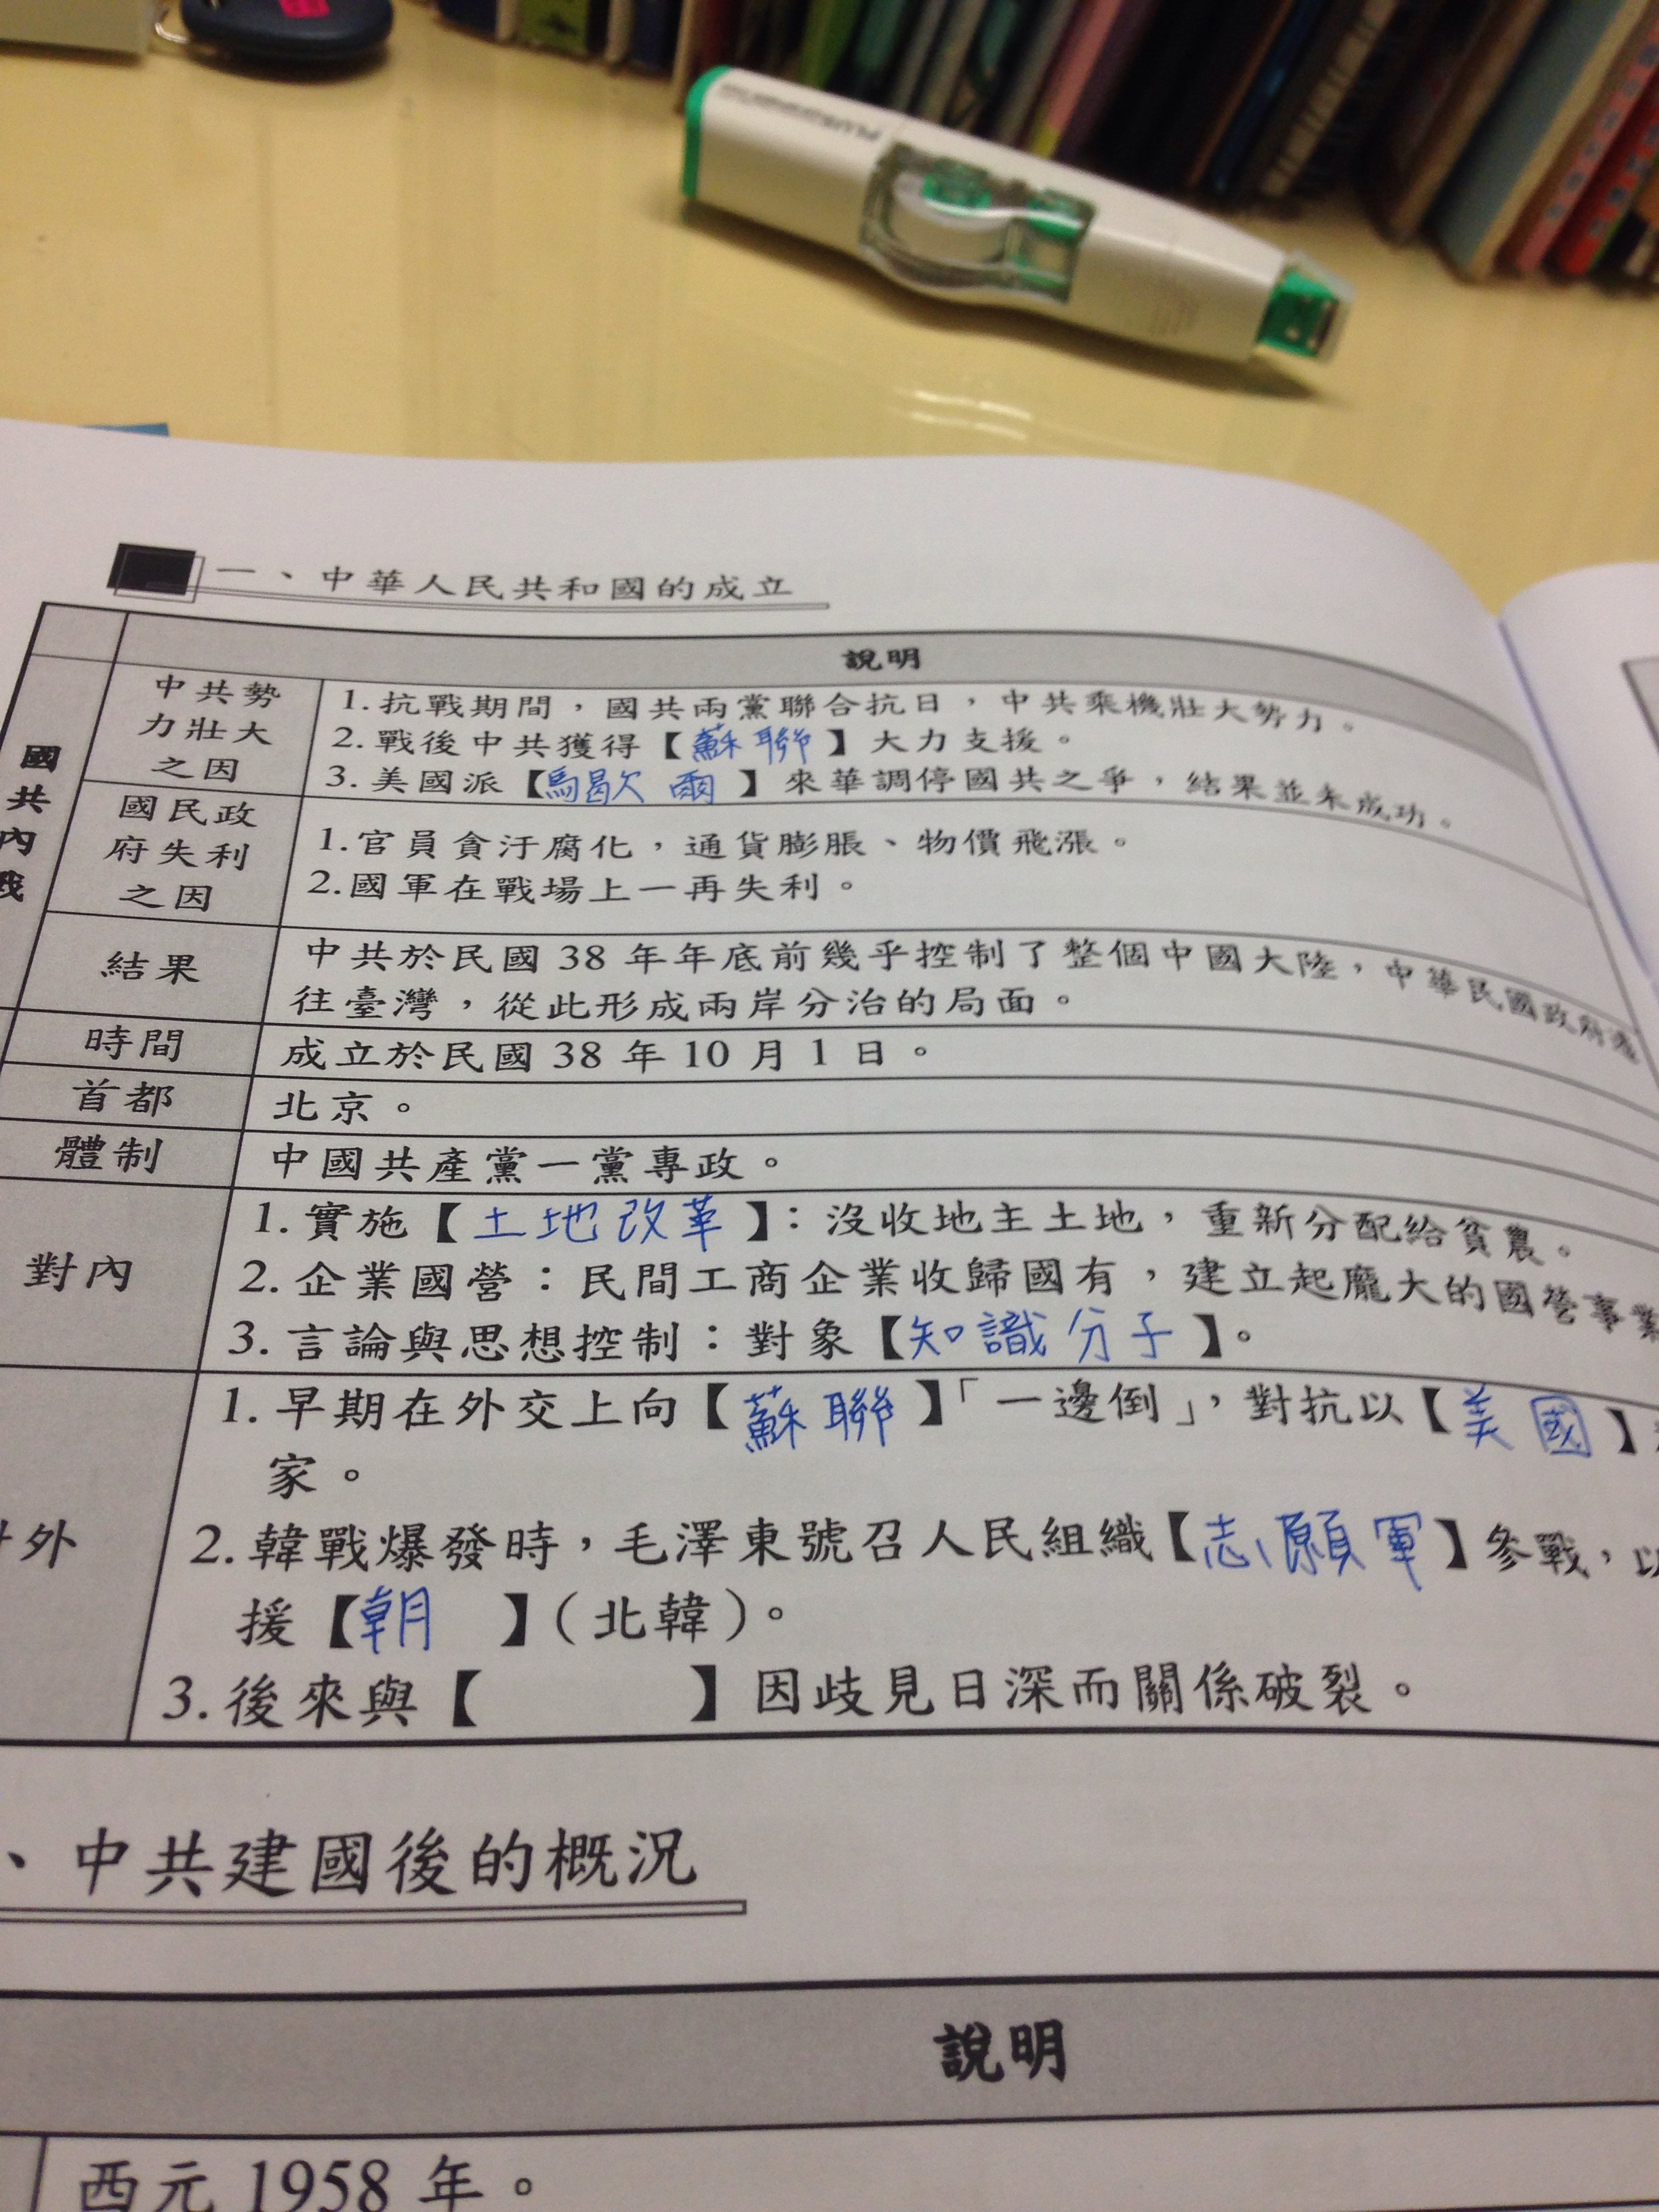 PLUS
一、中華人民共和國的成立
說明
國共內戰
中共勢
力壯大
之因
1.抗戰期間，國共兩黨聯合抗日，中共乘機壯大勢力。
2.戰後中共獲得【蘇聯】大力支援。
3.美國派【馬歇爾】來華調停國共之爭，結果並未成功。
國民政
府失利
之因
1.官員貪汙腐化，通貨膨脹、物價飛漲。
2.國軍在戰場上一再失利。
結果
中共於民國38年年底前幾乎控制了整個中國大陸，中華民國政府
往臺灣，從此形成兩岸分治的局面。
時間
成立於民國38年10月1日。
首都
北京。
體制
中國共產黨一黨專政。
對內
1.實施【土地改革】：沒收地主土地，重新分配給貧農。
2.企業國營：民間工商企業收歸國有，建立起龐大的國營事業
3.言論與思想控制：對象【知識分子】。
外
1.早期在外交上向【蘇聯】「一邊倒」，對抗以【美國】
家。
2.韓戰爆發時，毛澤東號召人民組織【志願軍】參戰，以
援【朝　】（北韓）。
3.後來與【　　　】因歧見日深而關係破裂。
、中共建國後的概況
說明
西元1958年。